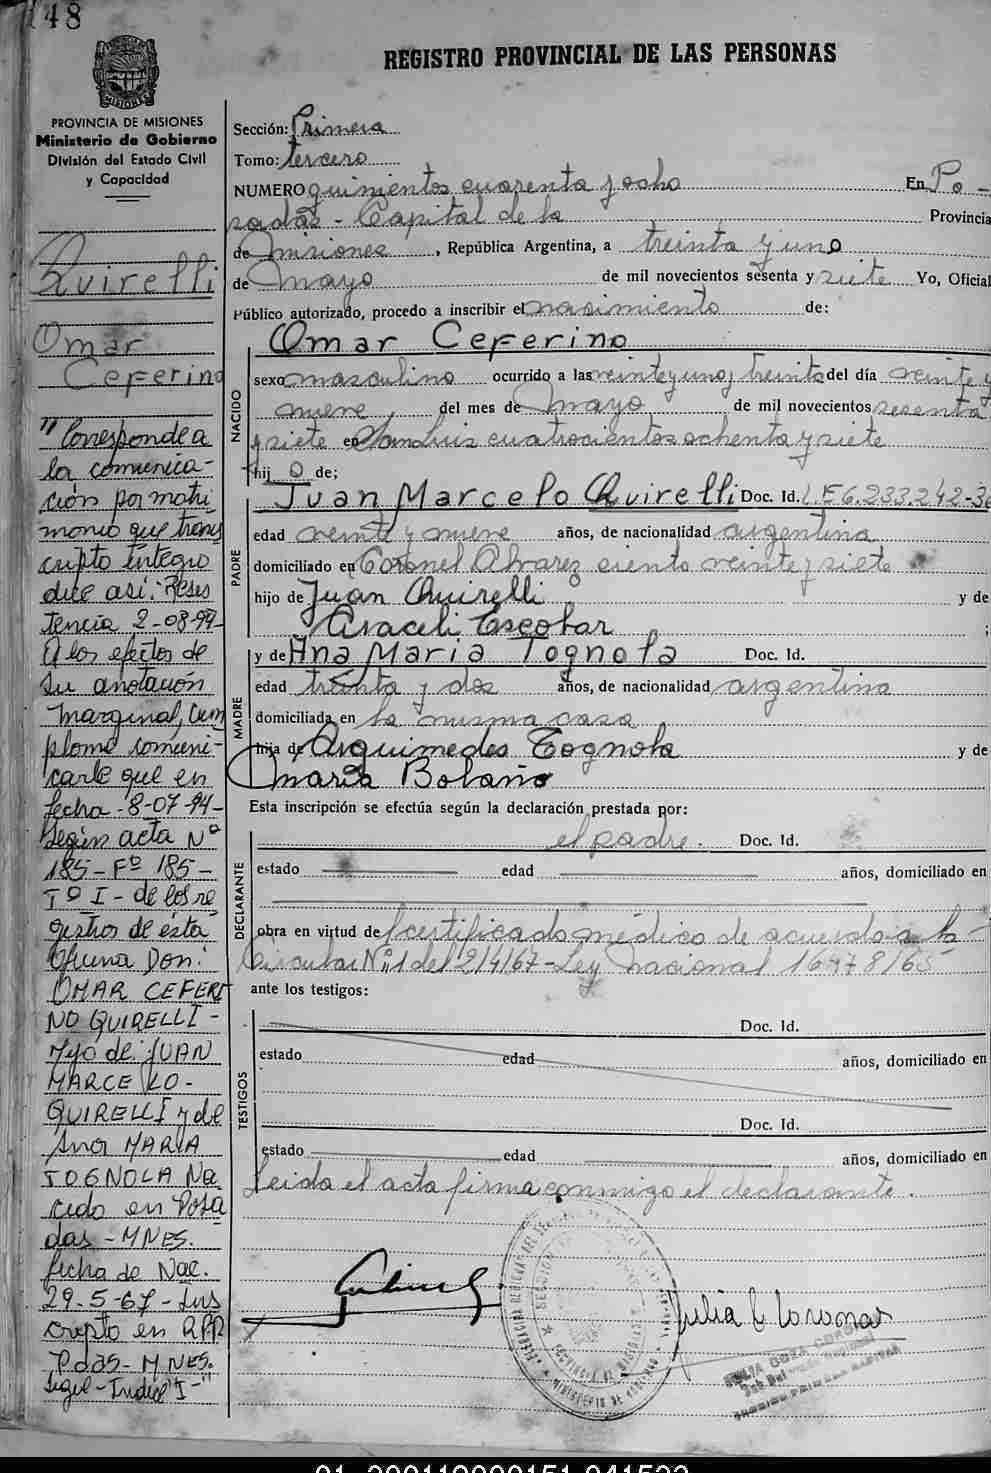 148
REGISTRO PROVINCIAL DE LAS PERSONAS
PROVINCIA DE MISIONES
Ministerio de Gobierno
División del Estado Civil
y Capacidad
Quirelli
Omar
Ceferino
"Corresponde a
la comunica-
ción por matri
monio que trans
cripto íntegro
dice así: Resis
tencia 2-08-94-
A los efectos de
su anotación
marginal, cum
plome comuni-
carle que en
fecha -8-07-94-
según acta Nº
185-Fº 185-
Tº I - de los re
gistros de ésta
Oficina Don:
OMAR CEFERI
NO QUIRELLI-
Hijo de: JUAN
MARCELO-
QUIRELLI y de
Ana MARIA
TOGNOLA Na
cido en Posa
das-MNES.
fecha de Nac.
29-5-67-Ins
cripto en RPP
Pdas-MNES.
Legil-Indice "I-"
Sección: Primera
Tomo: tercero
NUMERO quinientos cuarenta y ocho En Po-
sadas - Capital de la Provincia
de Misiones, República Argentina, a treinta y uno
de Mayo de mil novecientos sesenta y siete Yo, Oficial
Público autorizado, procedo a inscribir el nacimiento de:
NACIDO
Omar Ceferino
sexo masculino ocurrido a las veinte y uno y treinta del día veinte y
nueve del mes de Mayo de mil novecientos sesenta
y siete en San Luis cuatrocientos ochenta y siete
hijo de;
PADRE
Juan Marcelo Quirelli Doc. Id. L.E 6.233.242-36
edad veinte y nueve años, de nacionalidad argentina
domiciliado en Coronel Alvarez ciento veinte y siete
hijo de Juan Quirelli y de
Araceli Escobar ;
MADRE
y de Ana Maria Tognola Doc. Id.
edad treinta y dos años, de nacionalidad argentina
domiciliada en la misma casa
hija de Arquimedes Tognola y de
Maria Bolaño
Esta inscripción se efectúa según la declaración prestada por:
DECLARANTE
el padre. Doc. Id.
estado edad años, domiciliado en
obra en virtud de certificado médico de acuerdo a la
Circular Nº 1 del 2/4/67-Ley nacional 16478/65
ante los testigos:
TESTIGOS
Doc. Id.
estado edad años, domiciliado en
Doc. Id.
estado edad años, domiciliado en
Leida el acta firma conmigo el declarante.
Julia C Coronas
01 200110900151 041522